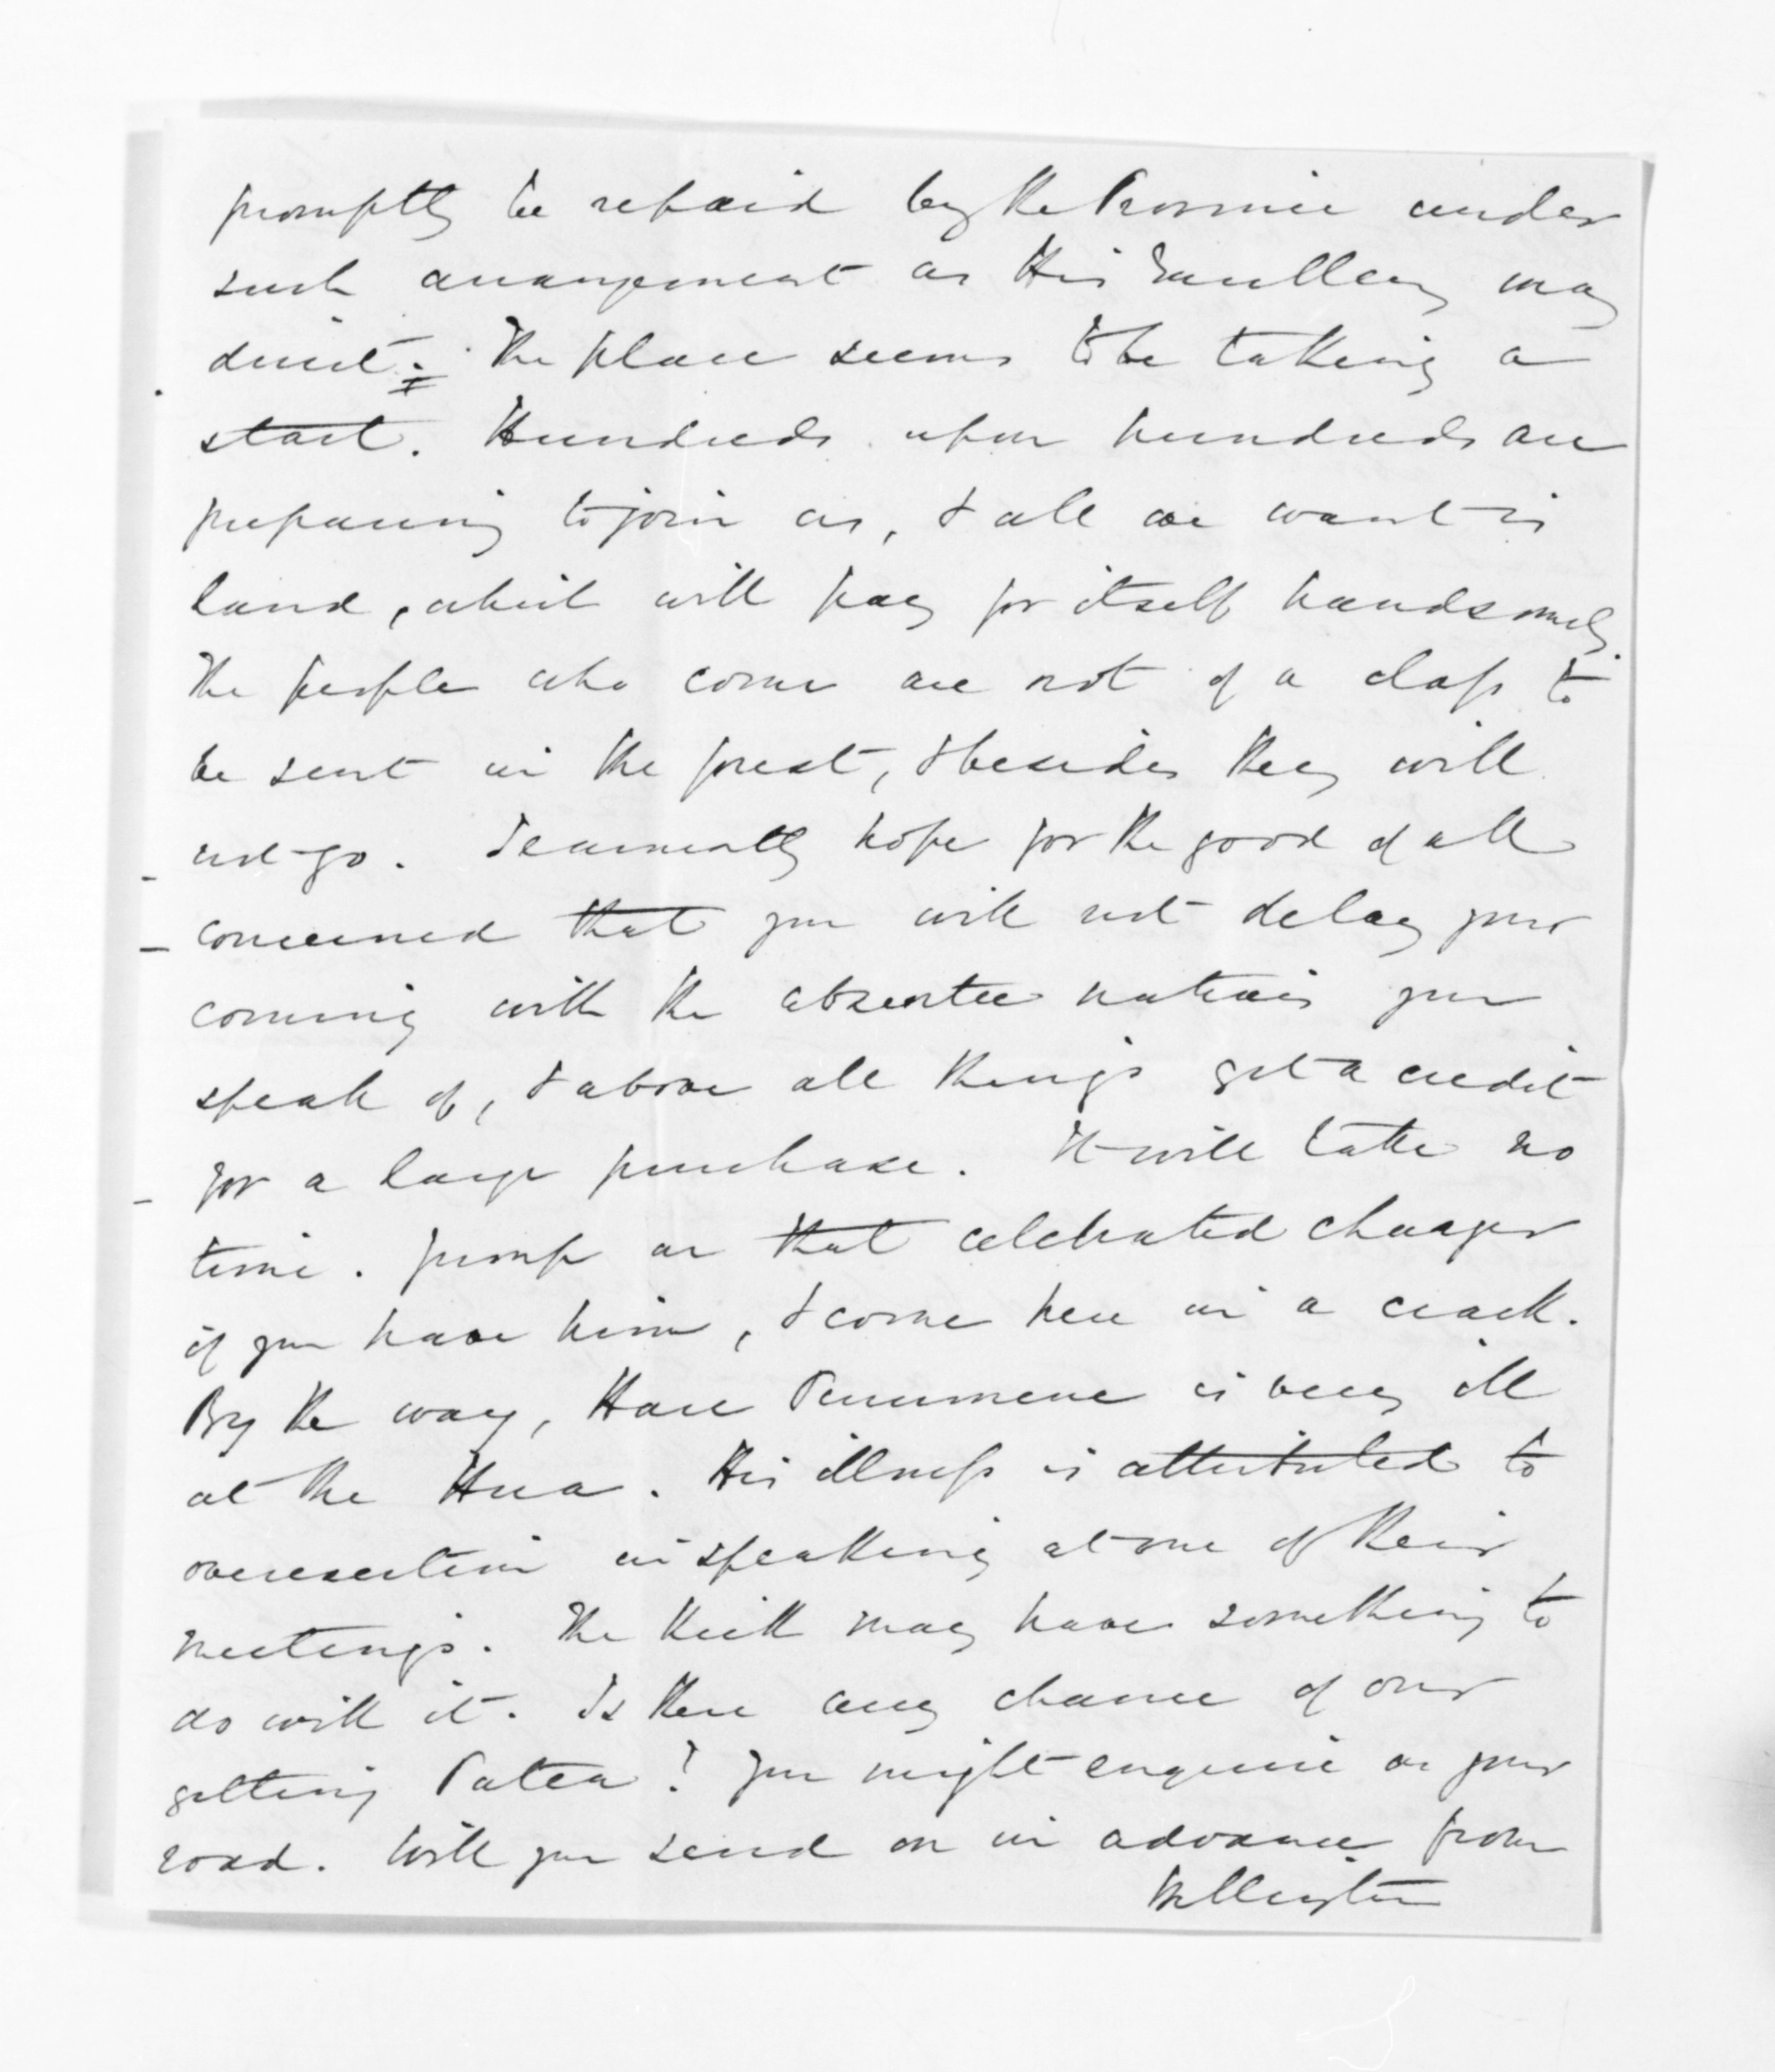 promptly be repaid by the Province under
such arrangement as His Excellency may
direct. The place seems to be taking a
start. Hundreds upon hundreds are
preparing to join us, & all we want is
land, which will pay for itself handsomely.
The people who come are not of a class to
be sent in the forest, & besides they will
not go. I earnestly hope for the good of all
concerned that you will not delay your
coming with the absentee natives you
speak of, & above all things get a credit
for a large purchase. It will take no
time. Jump on that celebrated charger
if you have him, & come here in a crack.
By the way, Hare is very ill
at the Hua. His illness is attributed to
overexertion in speaking at one of their
meetings. The kick may have something to
do with it. Is there any chance of our
getting Patea? You might enquire on your
road. Will you send on in advance from
Wellington